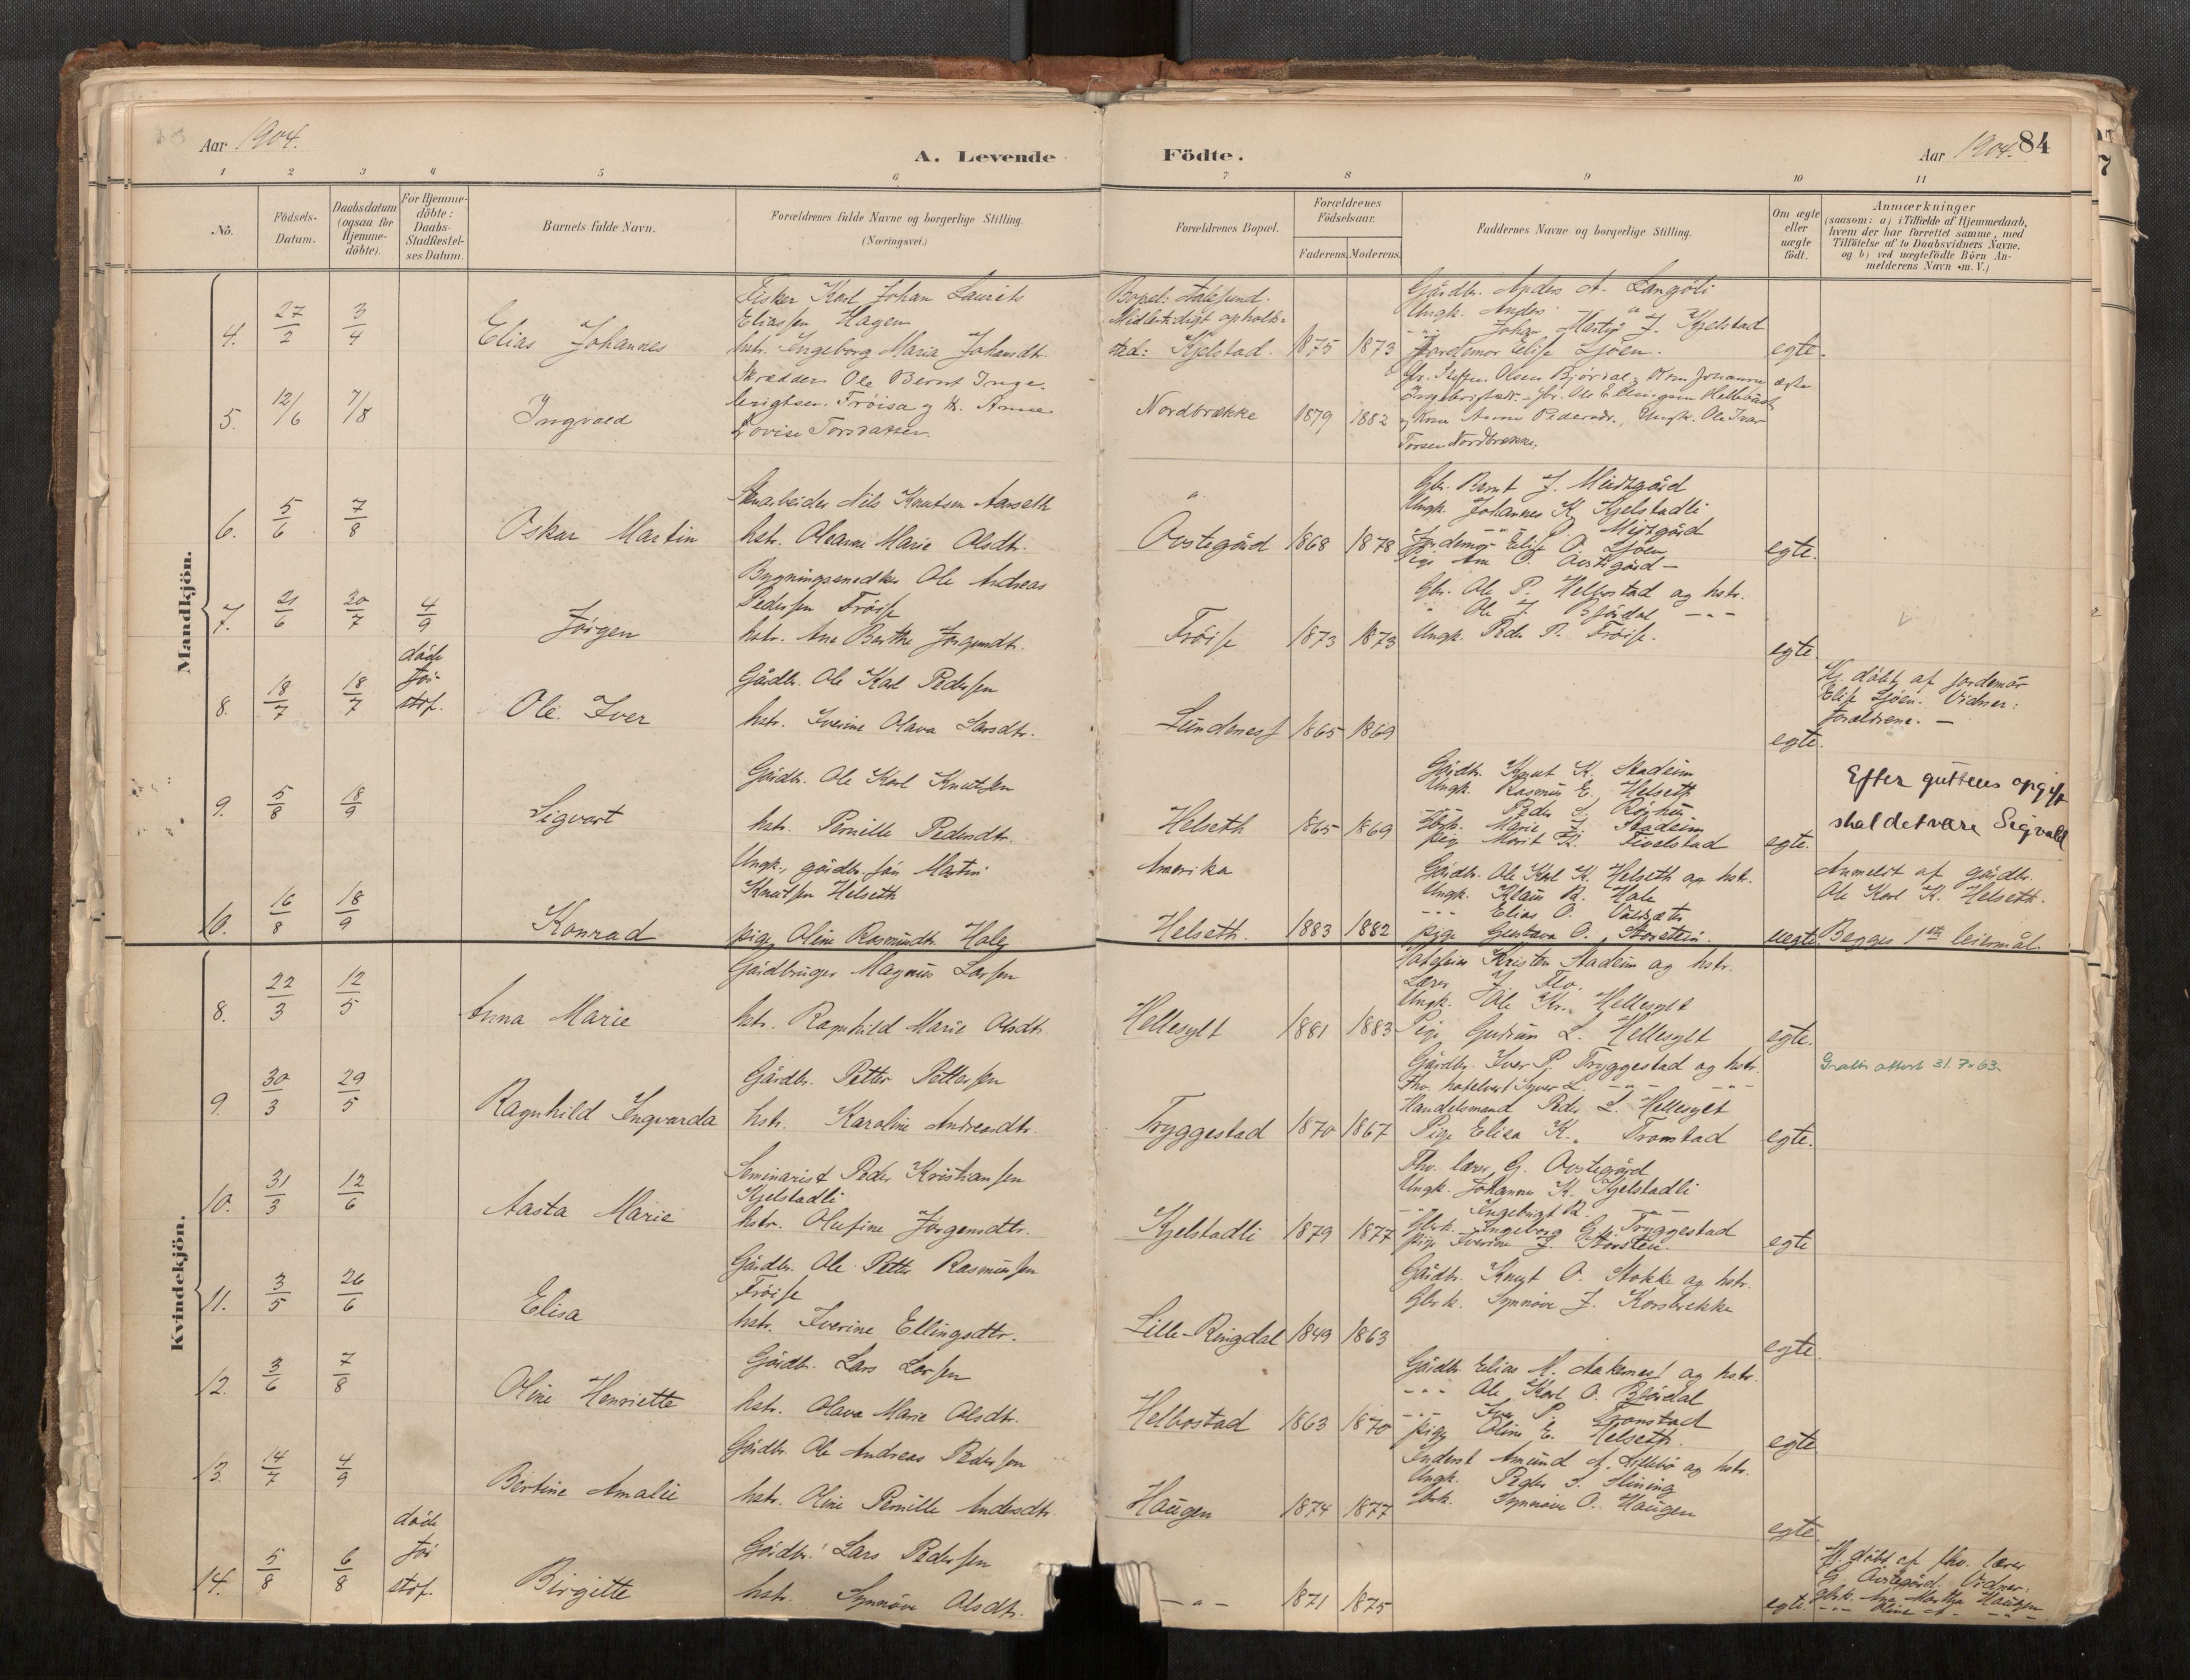 Aar 1904.
A. Levende
Födte.
Aar 1904.
84
1 2 3 4 5 6 7 8 9 10 11
No.
Födsels-Datum.
Daabsdatum (ogsaa for Hjemme-döbte).
For Hjemme-döbte: Daabs-Stadfæstel-ses Datum.
Barnets fulde Navn.
Forældrenes fulde Navne og borgerlige Stilling.
(Næringsvei.)
Forældrenes Bopæl.
Forældrenes Födselsaar.
Faderens. Moderens.
Faddernes Navne og borgerlige Stilling.
Om ægte eller uægte födt.
Anmærkninger
(saasom: a) i Tilfælde af Hjemmedaab,
hvem der har forrettet samme, med
Tilföielse af to Daabsvidners Navne.
og b) ved uægtefödte Börn An-
melderens Navn m. V.)
Mandkjön.
4. 27/2 3/4
Elias Johannes
Fisker Karl Johan Laurits
Eliassen Hagen
hstr. Ingeborg Maria Johansdtr.
Bopel: Aalesund.
Midlertidigt opholds-
sted: Kjelstad. 1875 1873
Gårdbr. Anders A. Langöli
Ungk. Anders "
-"- Johan Martin J. Kjelstad
Jordemor Elise Ljöen.
egte.
5. 12/6 7/8
Ingvald
Skrædder Ole Bernt Inge-
brigtsen Fröisa og H. Anne
Lovise Torsdatter.
Nordbrække 1879 1882
Gbr. Steffen Olsen Bjørdal, Kone Johanne
Ingebrigtsdr. Gbr. Ole Ellingsen Hellebost
og Kone Anne Pedersdr., Ungk. Ole Ivar
Torsen Nordbrække.
egte
6. 5/6 7/8
Oskar Martin
Stenarbeider Nils Knutsen Aarseth
hstr. Oleanne Marie Olsdtr.
"
Ovstegård 1868 1878
Gbr. Bernt J. Midtgård
Ungk. Johannes K. Kjelstadli
-"- O. Midtgård
Jordemor Elise O. Ljöen
Pige Ane O. Ovstegård -
egte.
7. 21/6 30/7 4/9
Jörgen
Bygningssnedker Ole Andreas
Pedersen Fröise
hstr. Ane Berthe Jörgensdtr.
Fröise 1873 1873
Gbr. Ole P. Helbostad og hstr.
" Ole J. Björdal -"-
Ungk. Peder P. Fröise.
egte.
8. 18/7 18/7 döde för stdf.
Ole Iver
Gårdbr. Ole Karl Pedersen
hstr. Iverine Olava Larsdtr.
Lundenes 1865 1869
egte.
Hj. döbt af jordemor
Elise Ljöen. Vidner:
forældrene. -
9. 5/8 18/9
Sigvart
Gårdbr. Ole Karl Knutsen
hstr. Pernille Pedersdtr.
Helseth 1865 1869
Gårdbr. Knut K. Stadeim
Ungk. Rasmus E. Helseth
-"- Peder S. Röyhus
Gbrk. Marie J. Stadeim
Pige Marit K. Tivelstad
egte.
Efter guttens opgift
skal det være Sigvald
10. 16/8 18/9
Konrad
Ungk., gårdbr. sön Martin
Knutsen Helseth
pige Oline Rasmusdtr. Hole
Amerika
Helseth. 1883 1882
Gårdbr. Ole Karl K. Helseth og hstr.
Ungk. Klaus R. Hole
-"- Elias O.
pige Gustava O. Storstein.
uegte
Anmeldt af gårdbr.
Ole Karl K. Helseth.
Begges 1ste leiermål.
Kvindekjön.
8. 22/3 12/5
Anna Marie
Gårdbruger Magnus Larsen
hstr. Ragnhild Marie Olsdtr.
Hellesylt 1881 1883
Hoteleier Kristen Stadeim og hstr.
Lærer J. Flo.
Ungk. Ole Kr. Hellesylt
Pige Gudrun L. Hellesylt
egte.
9. 30/3 29/5
Ragnhild Ingvarda
Gårdbr. Petter Pettersen
hstr. Karoline Andreasdtr.
Tryggestad 1870 1867
Gårdbr. Iver P. Tryggestad og hstr.
Fhv. hotelvert Syver L. -"- -"-
Handelsmand Peder L. Hellesylt
Pige Elisa K. Tronstad
egte.
Gratis attest 31.7.63.
10. 31/3 12/6
Aasta Marie
Seminarist Peder Kristiansen
Kjelstadli
hstr. Olufine Jörgensdtr.
Kjelstadli 1879 1877
Fhv. lærer G. Ovstegård
Ungk. Johannes K. Kjelstadli
-"- Ingebrigt R. -"-
Gbrk. Ingeborg G. Tryggestad
pige Iverine J. Storstein.
egte
11. 3/5 26/6
Elisa
Gårdbr. Ole Petter Rasmussen
Fröise
hstr. Iverine Ellingsdtr.
Lille-Ringdal 1849 1863
Gårdbr. Knut O. Stokke og hstr.
Gbrk. Synnöve J. Korsbrekke
egte.
12. 3/6 7/8
Oline Henriette
Gårdbr. Lars Larsen
hstr. Olava Marie Olsdtr.
Helbostad 1863 1870
Gårdbr. Elias M. Aakernes og hstr.
-"- Ole Karl O. Björdal
-"- Iver P. Tronstad
pige Oline E. Helseth.
egte
13. 14/7 4/9
Bertine Amalie
Gårdbr. Ole Andreas Pedersen
hstr. Oline Pernille Andersdtr.
Haugen 1874 1877
Inderst Amund A. Lillebö og hstr.
Ungk. Peder S. Hining
Gbrk. Synnöve O. Haugen
egte
14. 5/8 6/8 döde för stdf.
Birgitte
Gårdbr. Lars Pedersen
hstr. Synnöve Olsdtr.
-"- 1871 1875
egte.
Hj. döbt af fhv. lærer
G. Ovstegård. Vidner:
gbrk. Ane Marthe Haugen
-"- Oline A. -"-